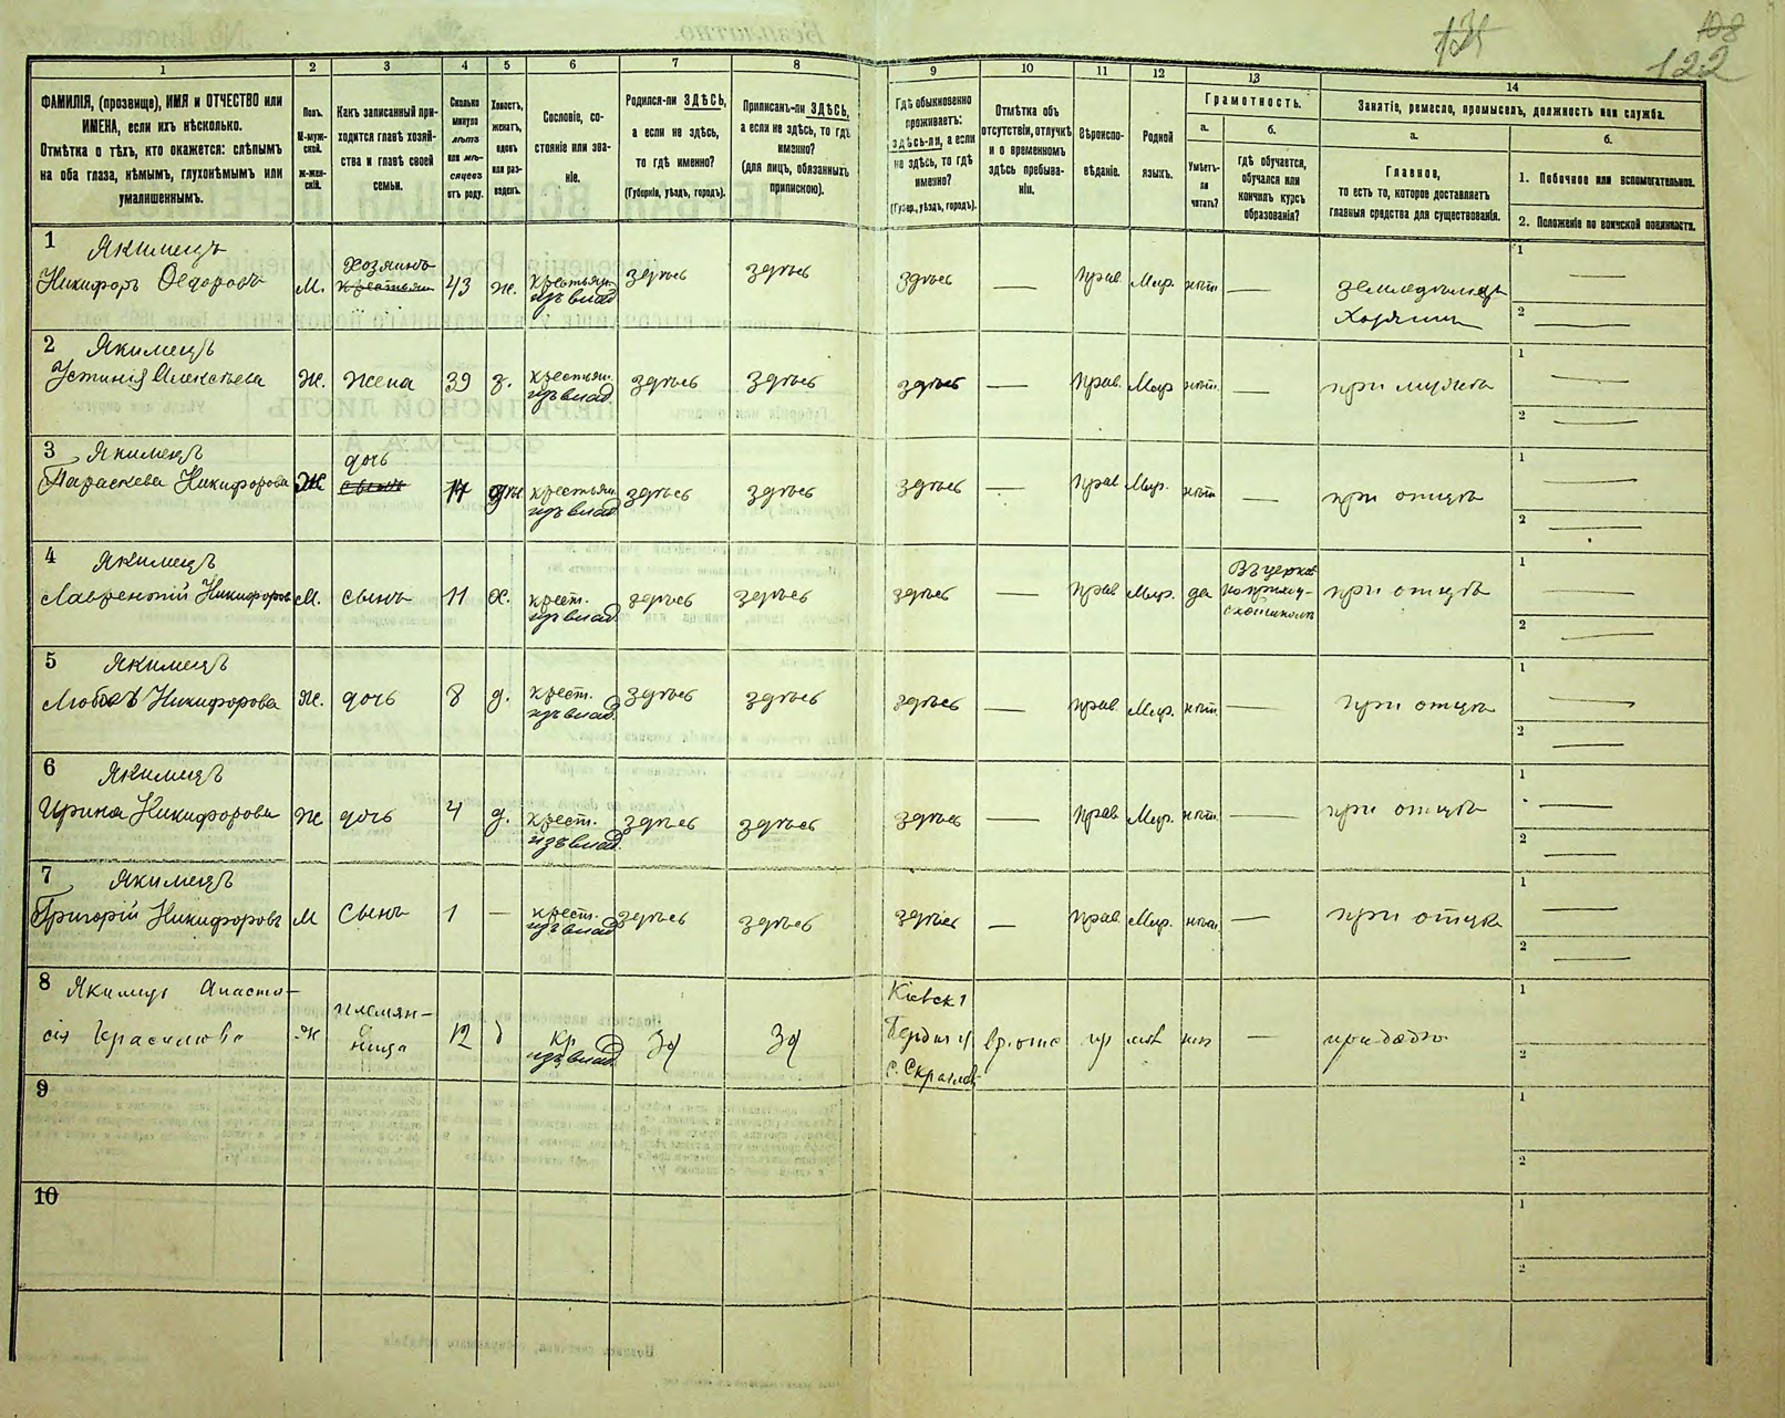 122
1 2 3 4 5 6 7 8 9 10 11 12 13 14
ФАМИЛІЯ, (прозвище), ИМЯ и ОТЧЕСТВО или
ИМЕНА, если ихъ нѣсколько.
Отмѣтка о тѣхъ, кто окажется: слѣпымъ
на оба глаза, нѣмымъ, глухонѣмымъ или
умалишеннымъ.
Полъ.
М-муж-
ской.
ж-жен-
скій.
Какъ записанный при-
ходится главѣ хозяй-
ства и главѣ своей
семьи.
Сколько
минуло
лѣтъ
или мѣ-
сяцевъ
отъ роду.
Холостъ,
женатъ,
вдовъ
или раз-
веденъ.
Сословіе, со-
стояніе или зва-
ніе.
Родился-ли ЗДѢСЬ,
а если не здѣсь,
то гдѣ именно?
(Губернія, уѣздъ, городъ).
Приписанъ-ли ЗДѢСЬ,
а если не здѣсь, то гдѣ
именно?
(для лицъ, обязанныхъ
припискою).
Гдѣ обыкновенно
проживаетъ:
здѣсь-ли, а если
не здѣсь, то гдѣ
именно?
(Губер., уѣздъ, городъ).
Отмѣтка объ
отсутствіи, отлучкѣ
и о временномъ
здѣсь пребыва-
ніи.
Вѣроиспо-
вѣданіе.
Родной
языкъ.
Грамотность.
а.
Умѣетъ-
ли
читать?
б.
гдѣ обучается,
обучался или
кончилъ курсъ
образованія?
Занятіе, ремесло, промыселъ, должность или служба.
а.
Главное,
то есть то, которое доставляетъ
главныя средства для существованія.
б.
1. Побочное или вспомогательное.
2. Положеніе по воинской повинности.
1 Якимецъ
Никифоръ Ѳедоровъ М. хозяинъ 43 ж. крестьян. изъ влад здѣсь здѣсь здѣсь — прав. Мар. нѣт — земледѣлецъ 1 —
хозяинъ 2 —
2 Якимецъ
Устинія Алексѣева Ж. жена 39 з. крестьян. изъ влад здѣсь здѣсь здѣсь — прав. Мар нѣт. — при мужѣ 1 —
2 —
3 Якимецъ
Параскева Никифорова Ж дочь крестьян. изъ влад здѣсь здѣсь здѣсь — прав Мар. нѣт — при отцѣ 1 —
2 —
4 Якимецъ
Лаврентій Никифоров М. сынъ 11 х. крест. изъ влад здѣсь здѣсь здѣсь — прав Мар. да при отцѣ 1 —
2 —
5 Якимецъ
Любовъ Никифорова Ж. дочь 8 д. крест. изъ влад здѣсь здѣсь здѣсь — прав. Мар. нѣт. — при отцѣ 1 —
2 —
6 Якимецъ
Ирина Никифорова Ж дочь 4 д. крест. изъ влад. здѣсь здѣсь здѣсь — прав. Мар. нѣт. — при отцѣ 1 —
2 —
7 Якимецъ
Григорій Никифоровъ М сынъ 1 — крест. изъ влад здѣсь здѣсь здѣсь — прав Мар. нѣт. — при отцѣ 1 —
2 —
8 Якимецъ Анаста-
сія Ж племян-
ница 12 д Кр изъ влад. Зд Зд Кіевск — при дядѣ 1
2
9 1
2
10 1
2